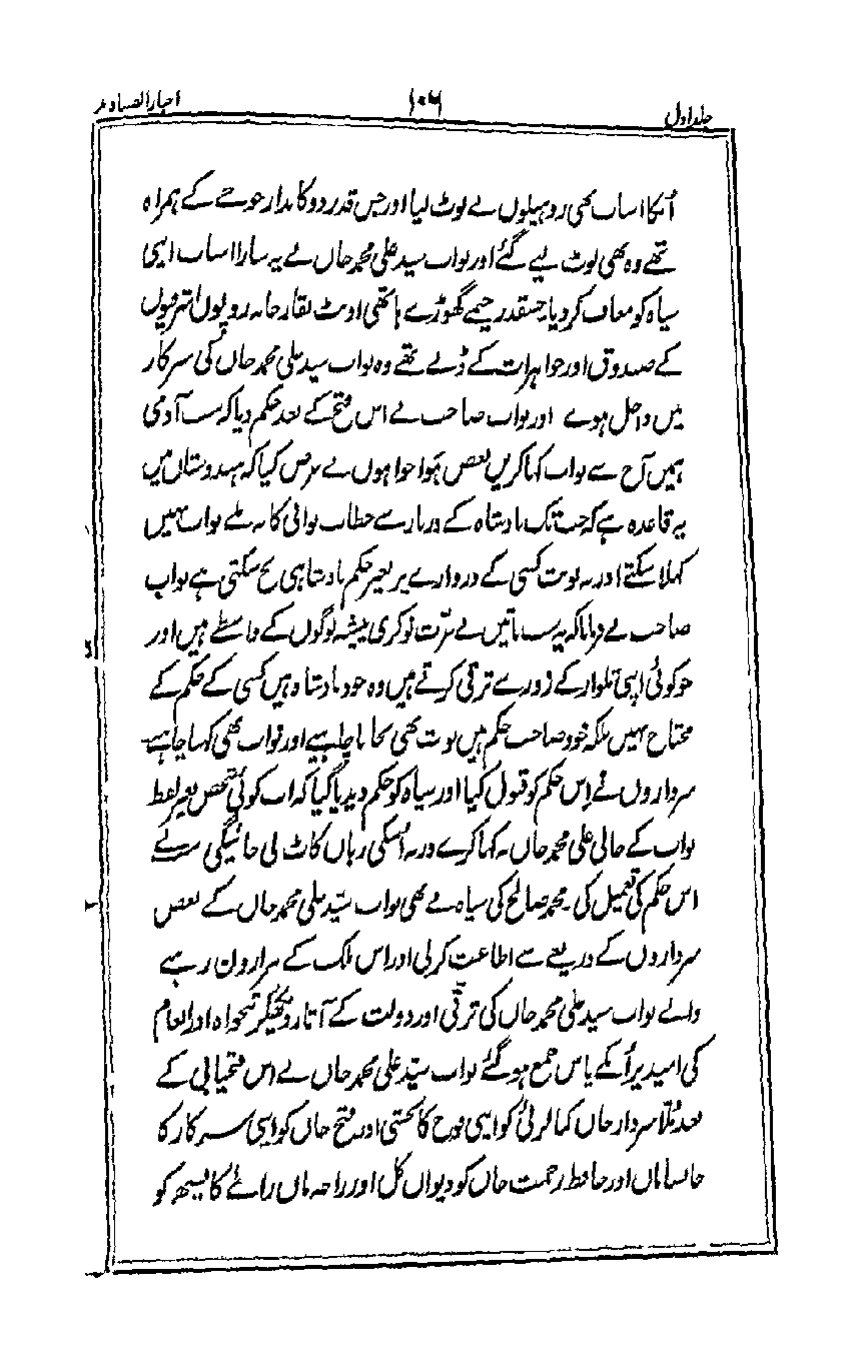 جلد اول ۱۰۶ اخبار الصنادید
اُنکا اسباب بھی روہیلوں نے لوٹ لیا اور جس قدر دوکاندار فوج کے ہمراہ
تھے وہ بھی لوٹ لیے گئے اور نواب سید علی محمد خاں نے یہ سارا اسباب اپنی
سپاہ کو معاف کر دیا جسقدر خیمے گھوڑے ہاتھی اونٹ نقارخانہ روپوں اشرفیوں
کے صندوق اور جواہرات کے ڈبے تھے وہ نواب سید علی محمد خاں کی سرکار
میں داخل ہوے اور نواب صاحب نے اس فتح کے بعد حکم دیا کہ سب آدمی
ہمیں آج سے نواب کہا کریں بعض ہوا خواہوں نے عرض کیا کہ ہندوستان میں
یہ قاعدہ ہے کہ جب تک بادشاہ کے دربار سے خطاب نوابی کا نہ ملے نواب نہیں
کہلا سکتے اور نہ نوبت کسی کے دروازے پر بغیر حکم بادشاہی بج سکتی ہے نواب
صاحب نے فرمایا کہ یہ سب باتیں بے عزت نوکری پیشہ لوگوں کے واسطے ہیں اور
جو کوئی اپنی تلوار کے زور سے ترقی کرتے ہیں وہ خود بادشاہ ہیں کسی کے حکم کے
محتاج نہیں بلکہ خود صاحب حکم ہیں نوبت بھی بجانا چاہیے اور نواب بھی کہنا چاہیے
سرداروں نے اِس حکم کو قبول کیا اور سپاہ کو حکم دیدیا گیا کہ اب کوئی شخص بغیر لفظ
نواب کے خالی علی محمد خاں نہ کہا کرے ورنہ اُسکی زبان کاٹ لی جائیگی سب نے
اس حکم کی تعمیل کی۔ محمد صالح کی سپاہ نے بھی نواب سیّد علی محمد خاں کے بعض
سرداروں کے ذریعے سے اطاعت کرلی اور اس ملک کے ہزاروں رہنے
والے نواب سید علی محمد خاں کی ترقی اور دولت کے آثار دیکھکر تنخواہ اور انعام
کی امید پر اُنکے پاس جمع ہوگئے نواب سیّد علی محمد خاں نے اس فتحیابی کے
بعد مُلّا سردار خاں کمالزئی کو اپنی فوج کا بخشی اور فتح خاں کو اپنی سرکار کا
خانساماں اور حافظ رحمت خاں کو دیوان کل اور راجہ مان رائے کایستھ کو